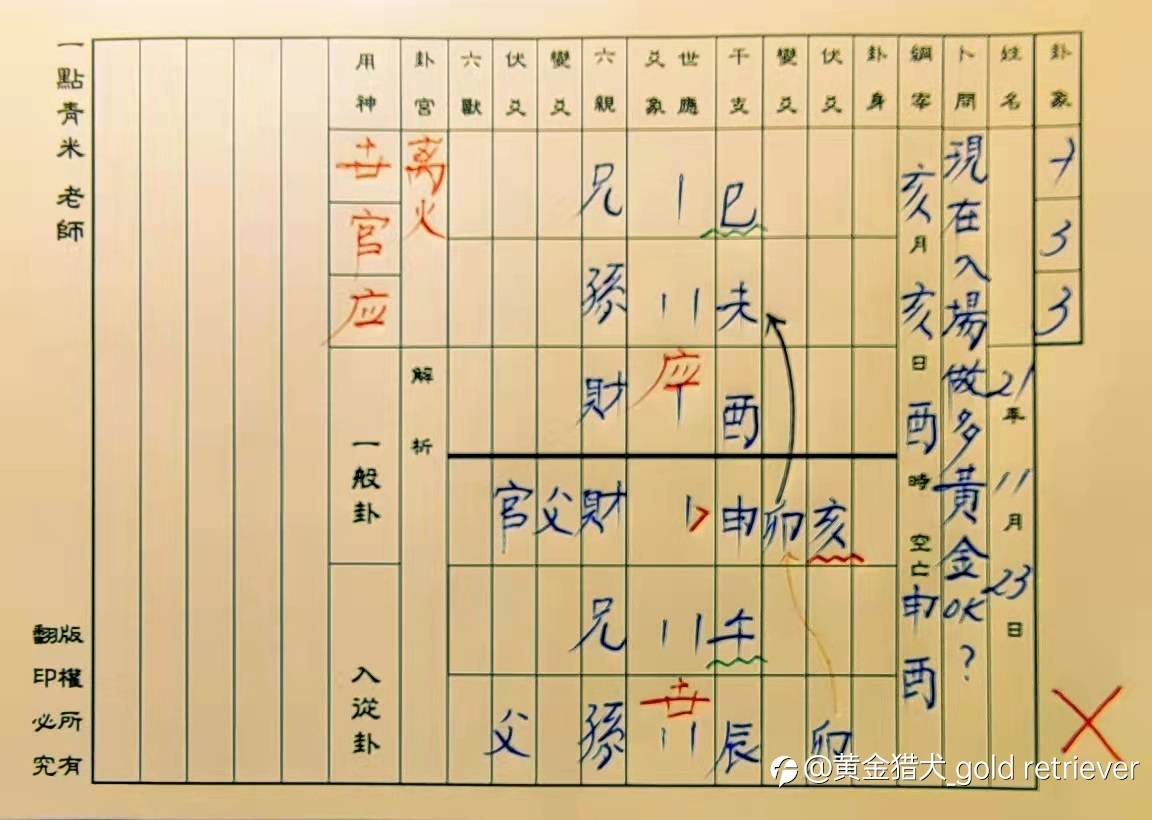 卦象
7
3
3
姓名
21年11月23日
卜問
現在入場做多黃金OK?
綱宰
亥月亥日酉時空亡申酉
卦身
伏爻
亥
卯
變爻
卯
干支
巳
未
酉
申
午
辰
世應
爻象
应
世
六親
兄
孫
財
財
兄
孫
變爻
父
伏爻
官
父
六獸
卦宮
离火
解析
用神
世
官
应
一般卦
入從卦
一點青米老師
版權所有
翻印必究
@黄金猎犬_gold retriever